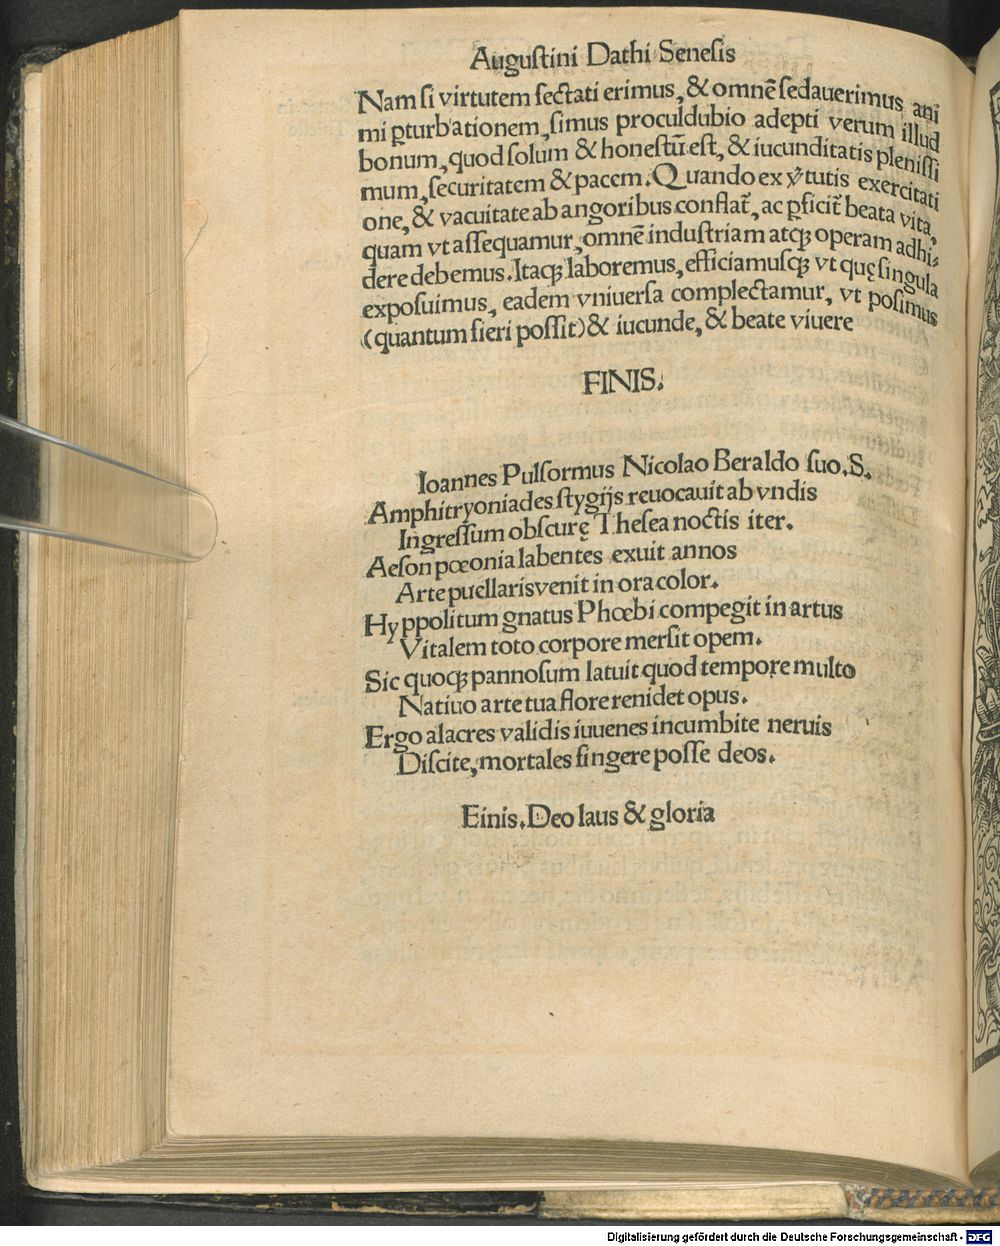 Auguſtini Dathi Seneſis
Nam ſi virtutem ſectati erimus, & omnē ſedauerimus ani
mi ꝑturbationem, ſimus proculdubio adepti verum illud
bonum, quod ſolum & honeſtū eſt, & iucunditatis pleniſſi
mum, ſecuritatem & pacem. Quando ex v̓tutis exercitati
one, & vacuitate ab angoribus conflat᷑, ac ꝑficit᷑ beata vita,
quam vt aſſequamur, omnē induſtriam atqꝫ operam adhi⸗
dere debemus. Itaqꝫ laboremus, efficiamuſqꝫ vt quę ſingula
expoſuimus, eadem vniuerſa complectamur, vt poſimus
(quantum fieri poſſit) & iucunde, & beate viuere
FINIS.
Ioannes Pulſormus Nicolao Beraldo ſuo. S.
Amphitryoniades ſtygijs reuocauit ab vndis
Ingreſſum obſcurę Theſea noctis iter.
Aeſon pœonia labentes exuit annos
Arte puellaris venit in ora color.
Hyppolitum gnatus Phœbi compegit in artus
Vitalem toto corpore merſit opem.
Sic quoqꝫ pannoſum latuit quod tempore multo
Natiuo arte tua flore renidet opus.
Ergo alacres validis iuuenes incumbite neruis
Diſcite, mortales fingere poſſe deos.
Einis. Deo laus & gloria
Digitalisierung gefördert durch die Deutsche Forschungsgemeinschaft - DFG